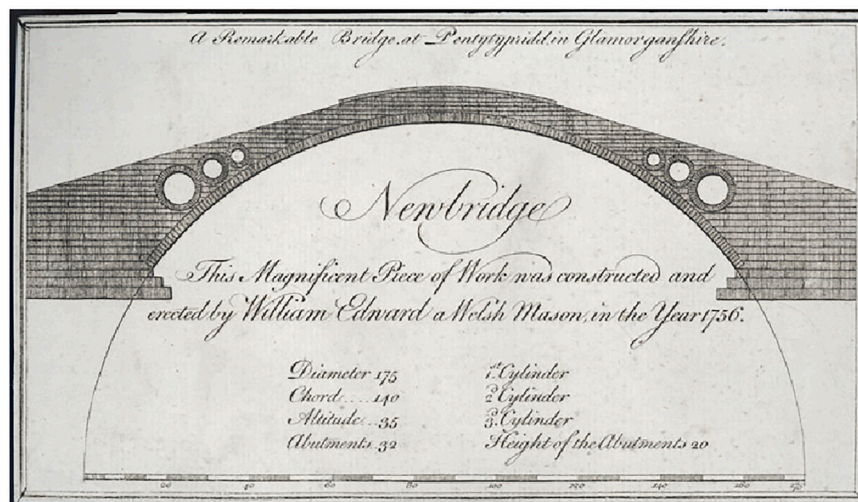 A Remarkable Bridge, at Pentytypridd, in Glamorganshire.
Newbridge
This Magnificent Piece of Work was constructed and
erected by William Edward a Welsh Mason, in the Year 1756.
Diameter 175
Chord.....140
Altitude...35
Abutments 32
1st Cylinder
2d Cylinder
3d Cylinder
Height of the Abutments 20
20 40 60 80 100 120 140 160 175